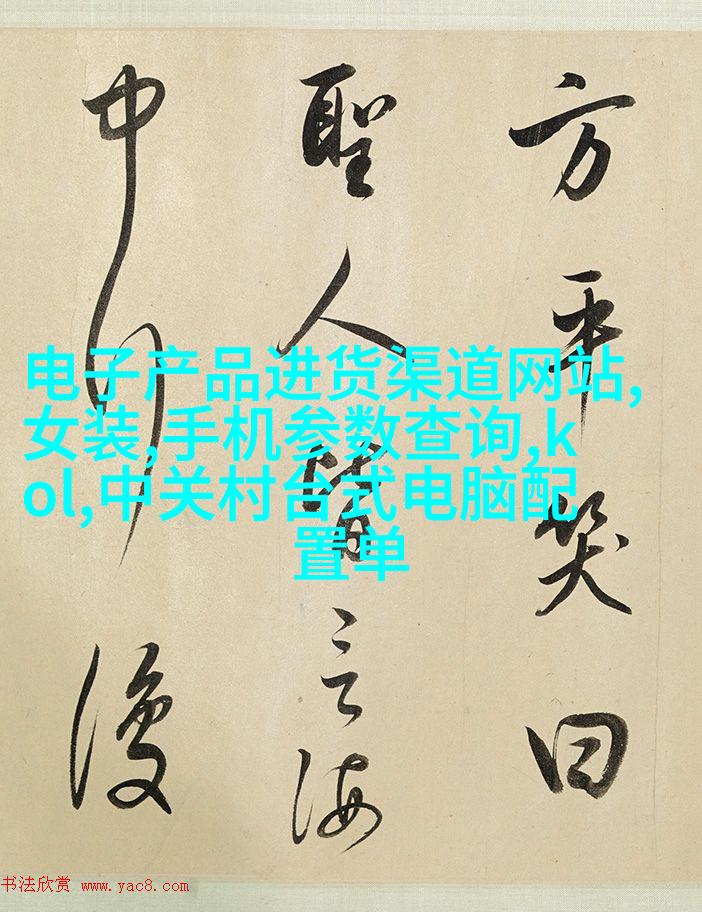 方平笑曰
聖人皆言海
中行復
电子产品进货渠道网站,
女装,手机参数查询,k
ol,中关村台式电脑配
置单
书法欣赏 www.yac8.com